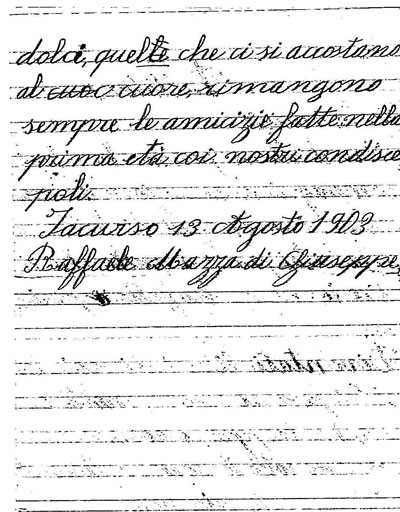 dolci, quelle che ci si accostano
al cuoc cuore, rimangono
sempre le amicizie fatte nella
prima età coi nostri condisce
poli.
Jacurso 13 Agosto 1903
Raffaele Mazza di Giuseppe